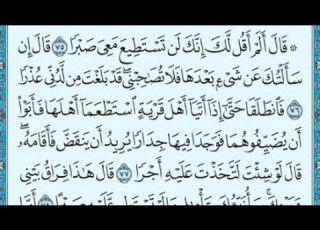 * قَالَ أَلَمْ أَقُل لَّكَ إِنَّكَ لَن تَسْتَطِيعَ مَعِىَ صَبْرًا ٧٥ قَالَ إِن
سَأَلْتُكَ عَن شَىْءٍۭ بَعْدَهَا فَلَا تُصَٰحِبْنِى ۖ قَدْ بَلَغْتَ مِن لَّدُنِّى عُذْرًا
٧٦ فَٱنطَلَقَا حَتَّىٰٓ إِذَآ أَتَيَآ أَهْلَ قَرْيَةٍ ٱسْتَطْعَمَآ أَهْلَهَا فَأَبَوْا۟
أَن يُضَيِّفُوهُمَا فَوَجَدَا فِيهَا جِدَارًا يُرِيدُ أَن يَنقَضَّ فَأَقَامَهُۥ ۖ
قَالَ لَوْ شِئْتَ لَتَّخَذْتَ عَلَيْهِ أَجْرًا ٧٧ قَالَ هَٰذَا فِرَاقُ بَيْنِى